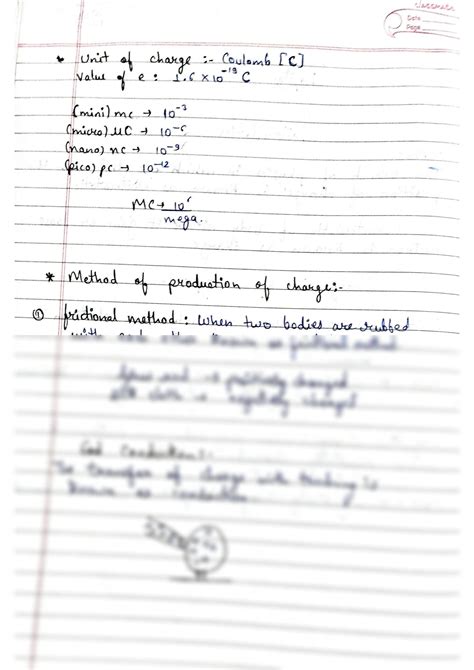 classmate
Date
Page
* Unit of charge :- Coulomb [C]
Value of e : 1.6 × 10⁻¹⁹ C
(mini) mc → 10⁻³
(micro) μC → 10⁻⁶
(nano) nc → 10⁻⁹
(pico) pc → 10⁻¹²
MC → 10⁶
mega.
* Method of production of charge:-
① frictional method : When two bodies are rubbed
with each other known as frictional method
→ positively charged
→ negatively charged
Conduction :-
The transfer of charge with touching is
known as conduction